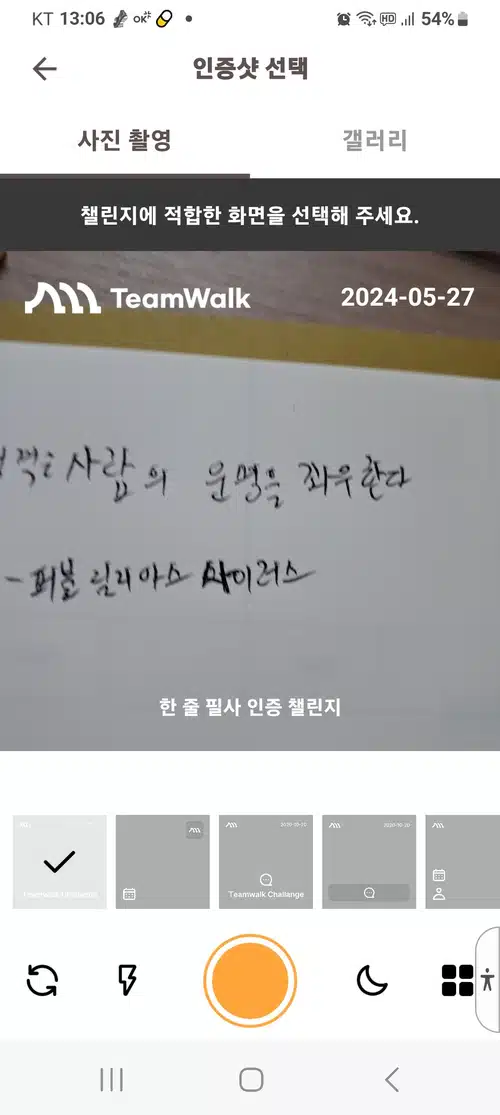 KT 13:06 OK 54%
인증샷 선택
사진 촬영 갤러리
챌린지에 적합한 화면을 선택해 주세요.
TeamWalk 2024-05-27
사람의 운명을 좌우한다
- 퍼블릴리아스 사이러스
한 줄 필사 인증 챌린지
Teamwalk Challange